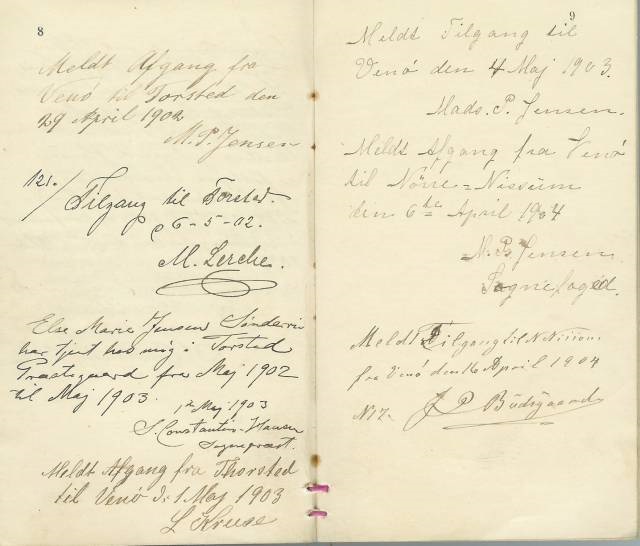 8
Meldt Afgang fra
Venø til Torsted den
29 April 1902
M. P. Jensen
121./ Tilgang til Torsted.
6-5-02.
M. Lerche.
Else Marie Jensen Sønderriis
har tjent hos mig i Torsted
Præstegaard fra Maj 1902
til Maj 1903.
1 Maj 1903
S. Constantin-Hansen
Sognepræst.
Meldt Afgang fra Thorsted
til Venø d: 1 Maj 1903
L Kruse
9
Meldt Tilgang til
Venø den 4 Maj 1903.
Mads. P. Jensen.
Meldt Afgang fra Venø
til Nörre=Nissum
den 6te April 1904
M. P. Jensen
Sognefoged.
Meldt Tilgang til N. Nissum
fra Venø den 16 April 1904
N17. J P